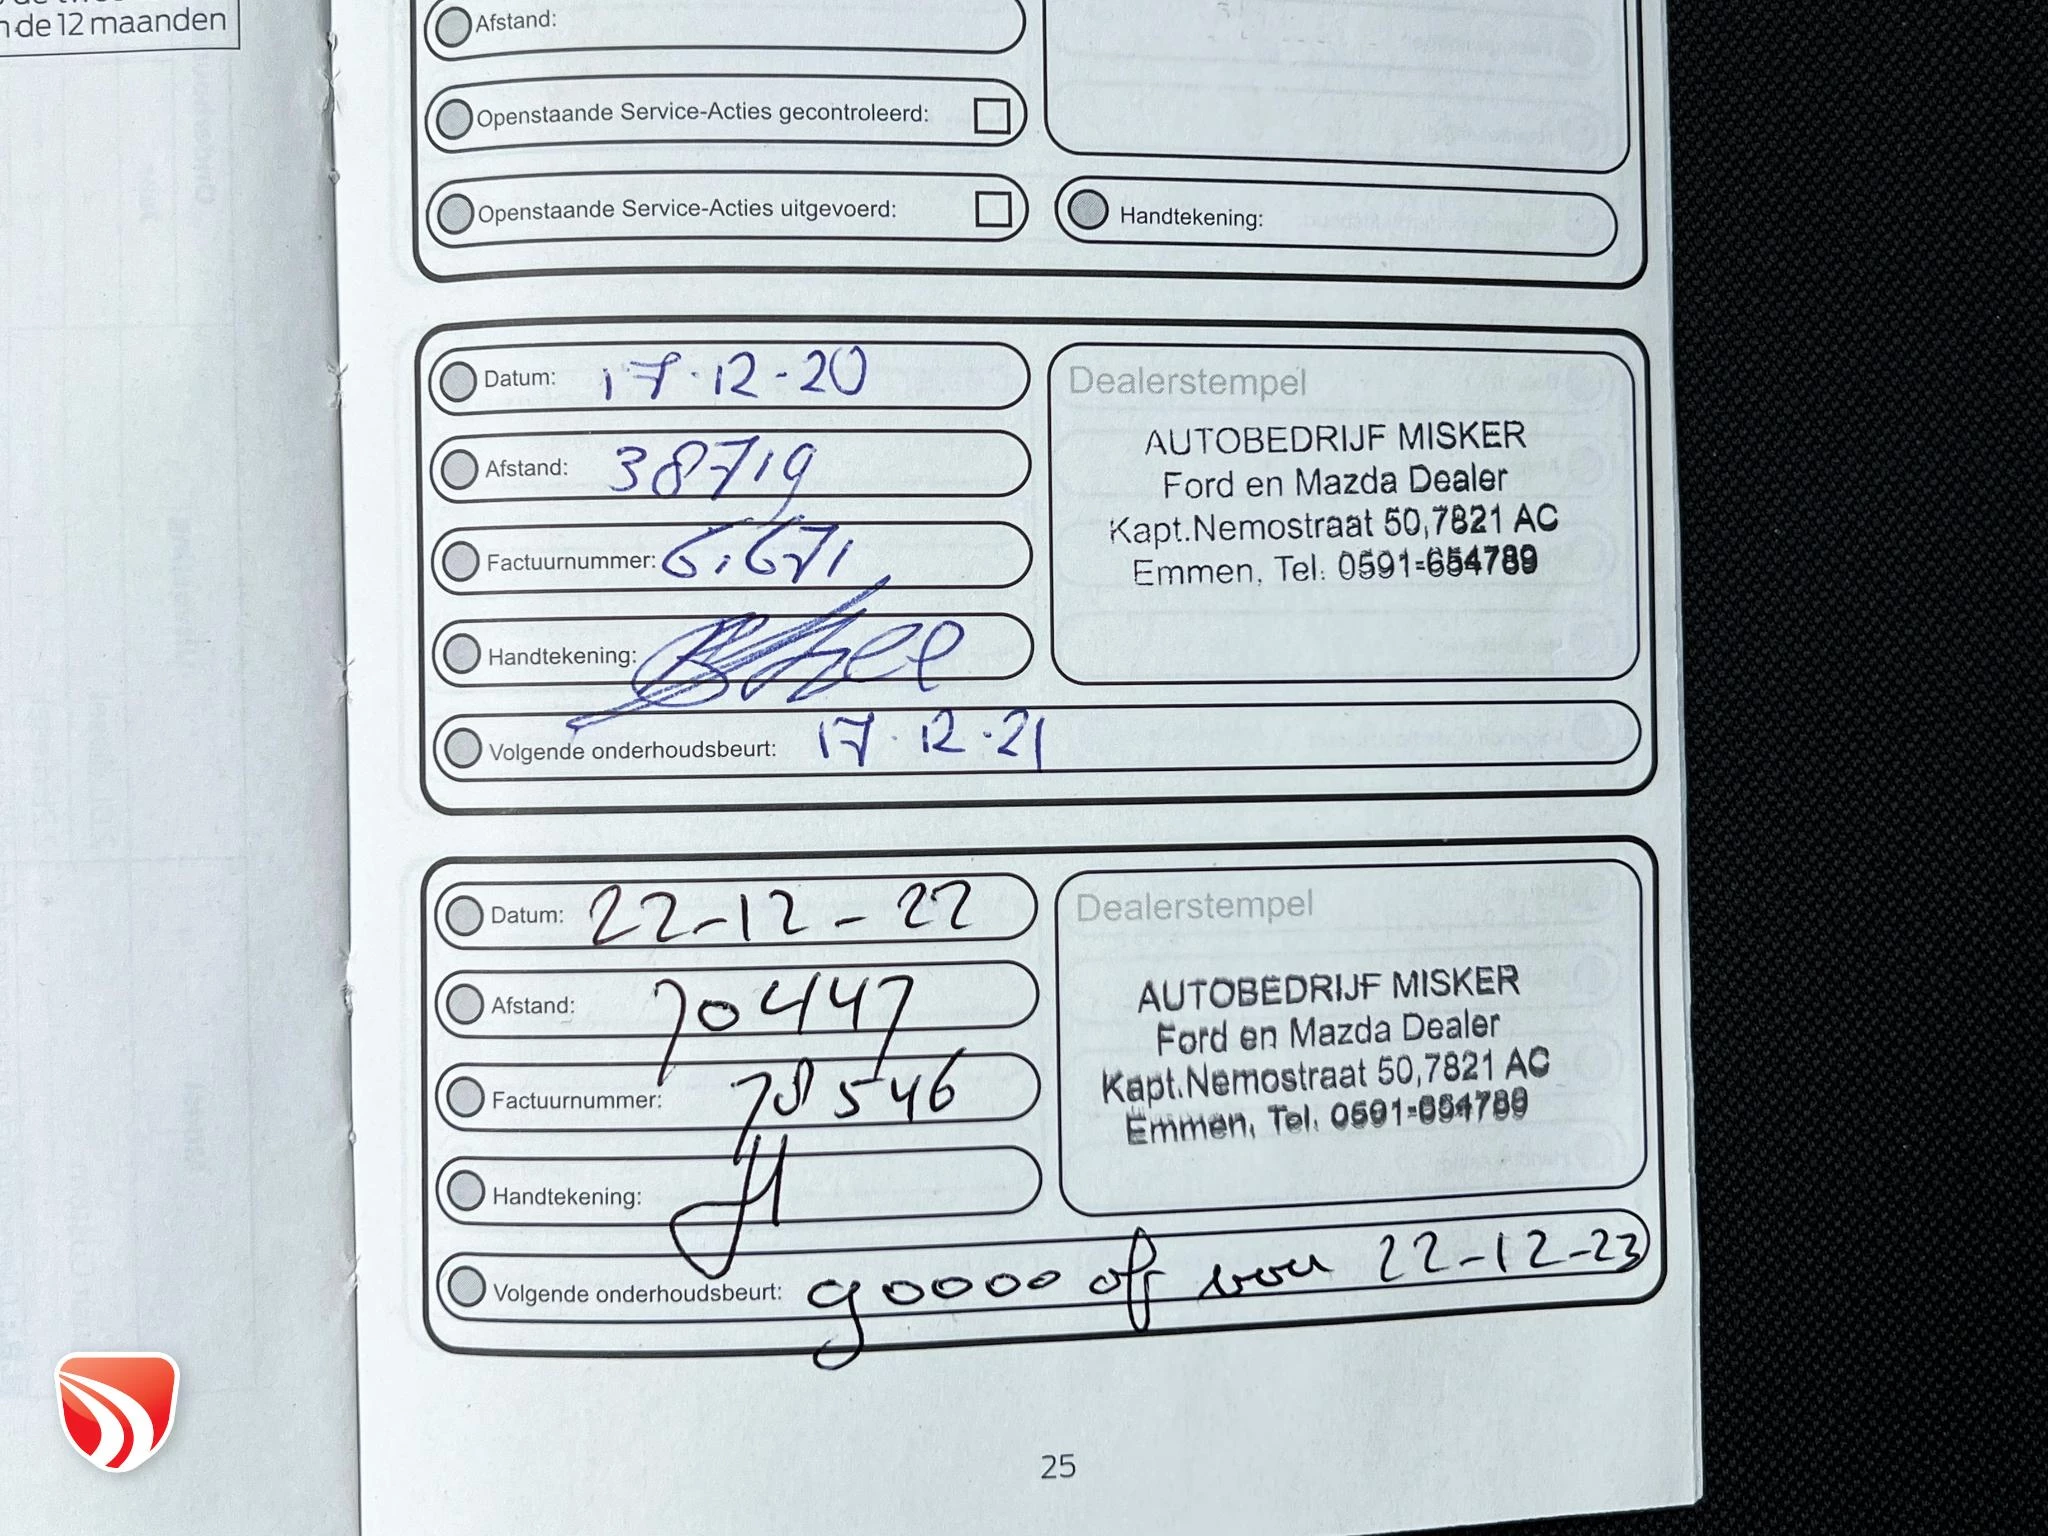 n de 12 maanden
Afstand:
Openstaande Service-Acties gecontroleerd:
Openstaande Service-Acties uitgevoerd:
Handtekening:
Datum: 17-12-20
Afstand: 38719
Factuurnummer:
Handtekening:
Volgende onderhoudsbeurt: 17-12-21
Dealerstempel
AUTOBEDRIJF MISKER
Ford en Mazda Dealer
Kapt.Nemostraat 50,7821 AC
Emmen, Tel. 0591-654789
Datum: 22-12-22
Afstand: 70447
Factuurnummer: 78546
Handtekening:
Volgende onderhoudsbeurt: 90000 of voor 22-12-23
Dealerstempel
AUTOBEDRIJF MISKER
Ford en Mazda Dealer
Kapt.Nemostraat 50,7821 AC
Emmen, Tel. 0591-654789
25